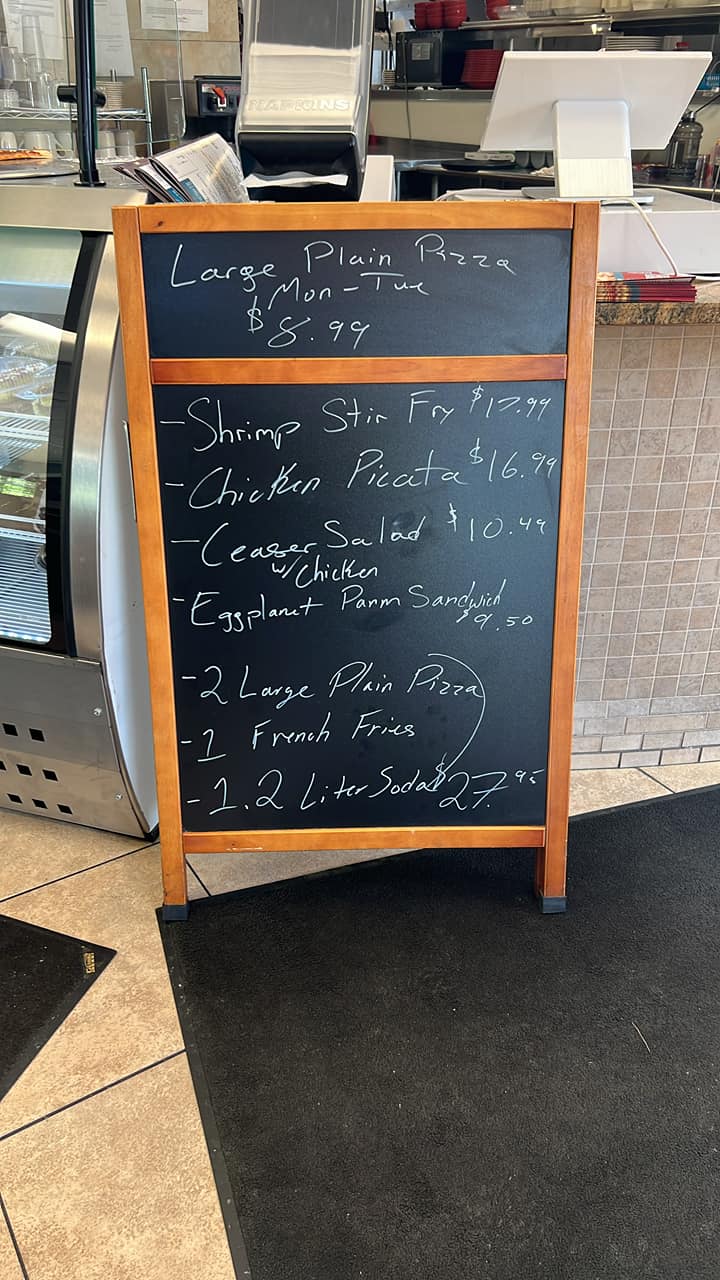 NAPKINS
Large Plain Pizza
Mon-Tue
$8.99
-Shrimp Stir Fry $17.99
-Chicken Picata $16.99
-Ceaser Salad $10.49
w/Chicken
-Eggplanet Parm Sandwich
$9.50
-2 Large Plain Pizza
-1 French Fries
-1.2 Liter Soda $27.95